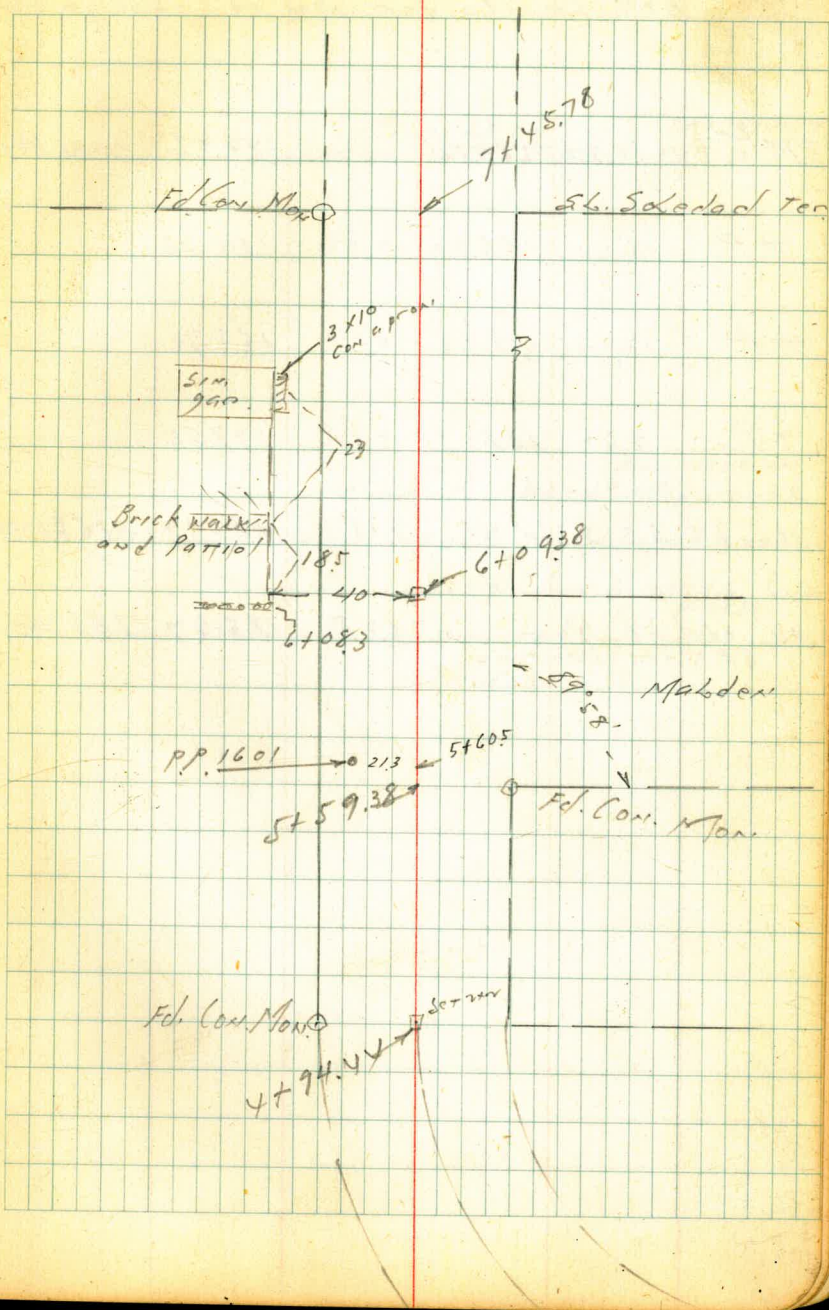 7+45.78
Fd Con. Mon
SL. Soledad Ter
3 x 10
con apron
Sim
gar.
23
Brick walk
and Pattiol
185
6+09.38
40
6+083
89°58'
Marsden
P.P. 1601
213
5+605
5+59.38
Fd. Con. Mon.
Fd. Con. Mon
Set
4+94.44